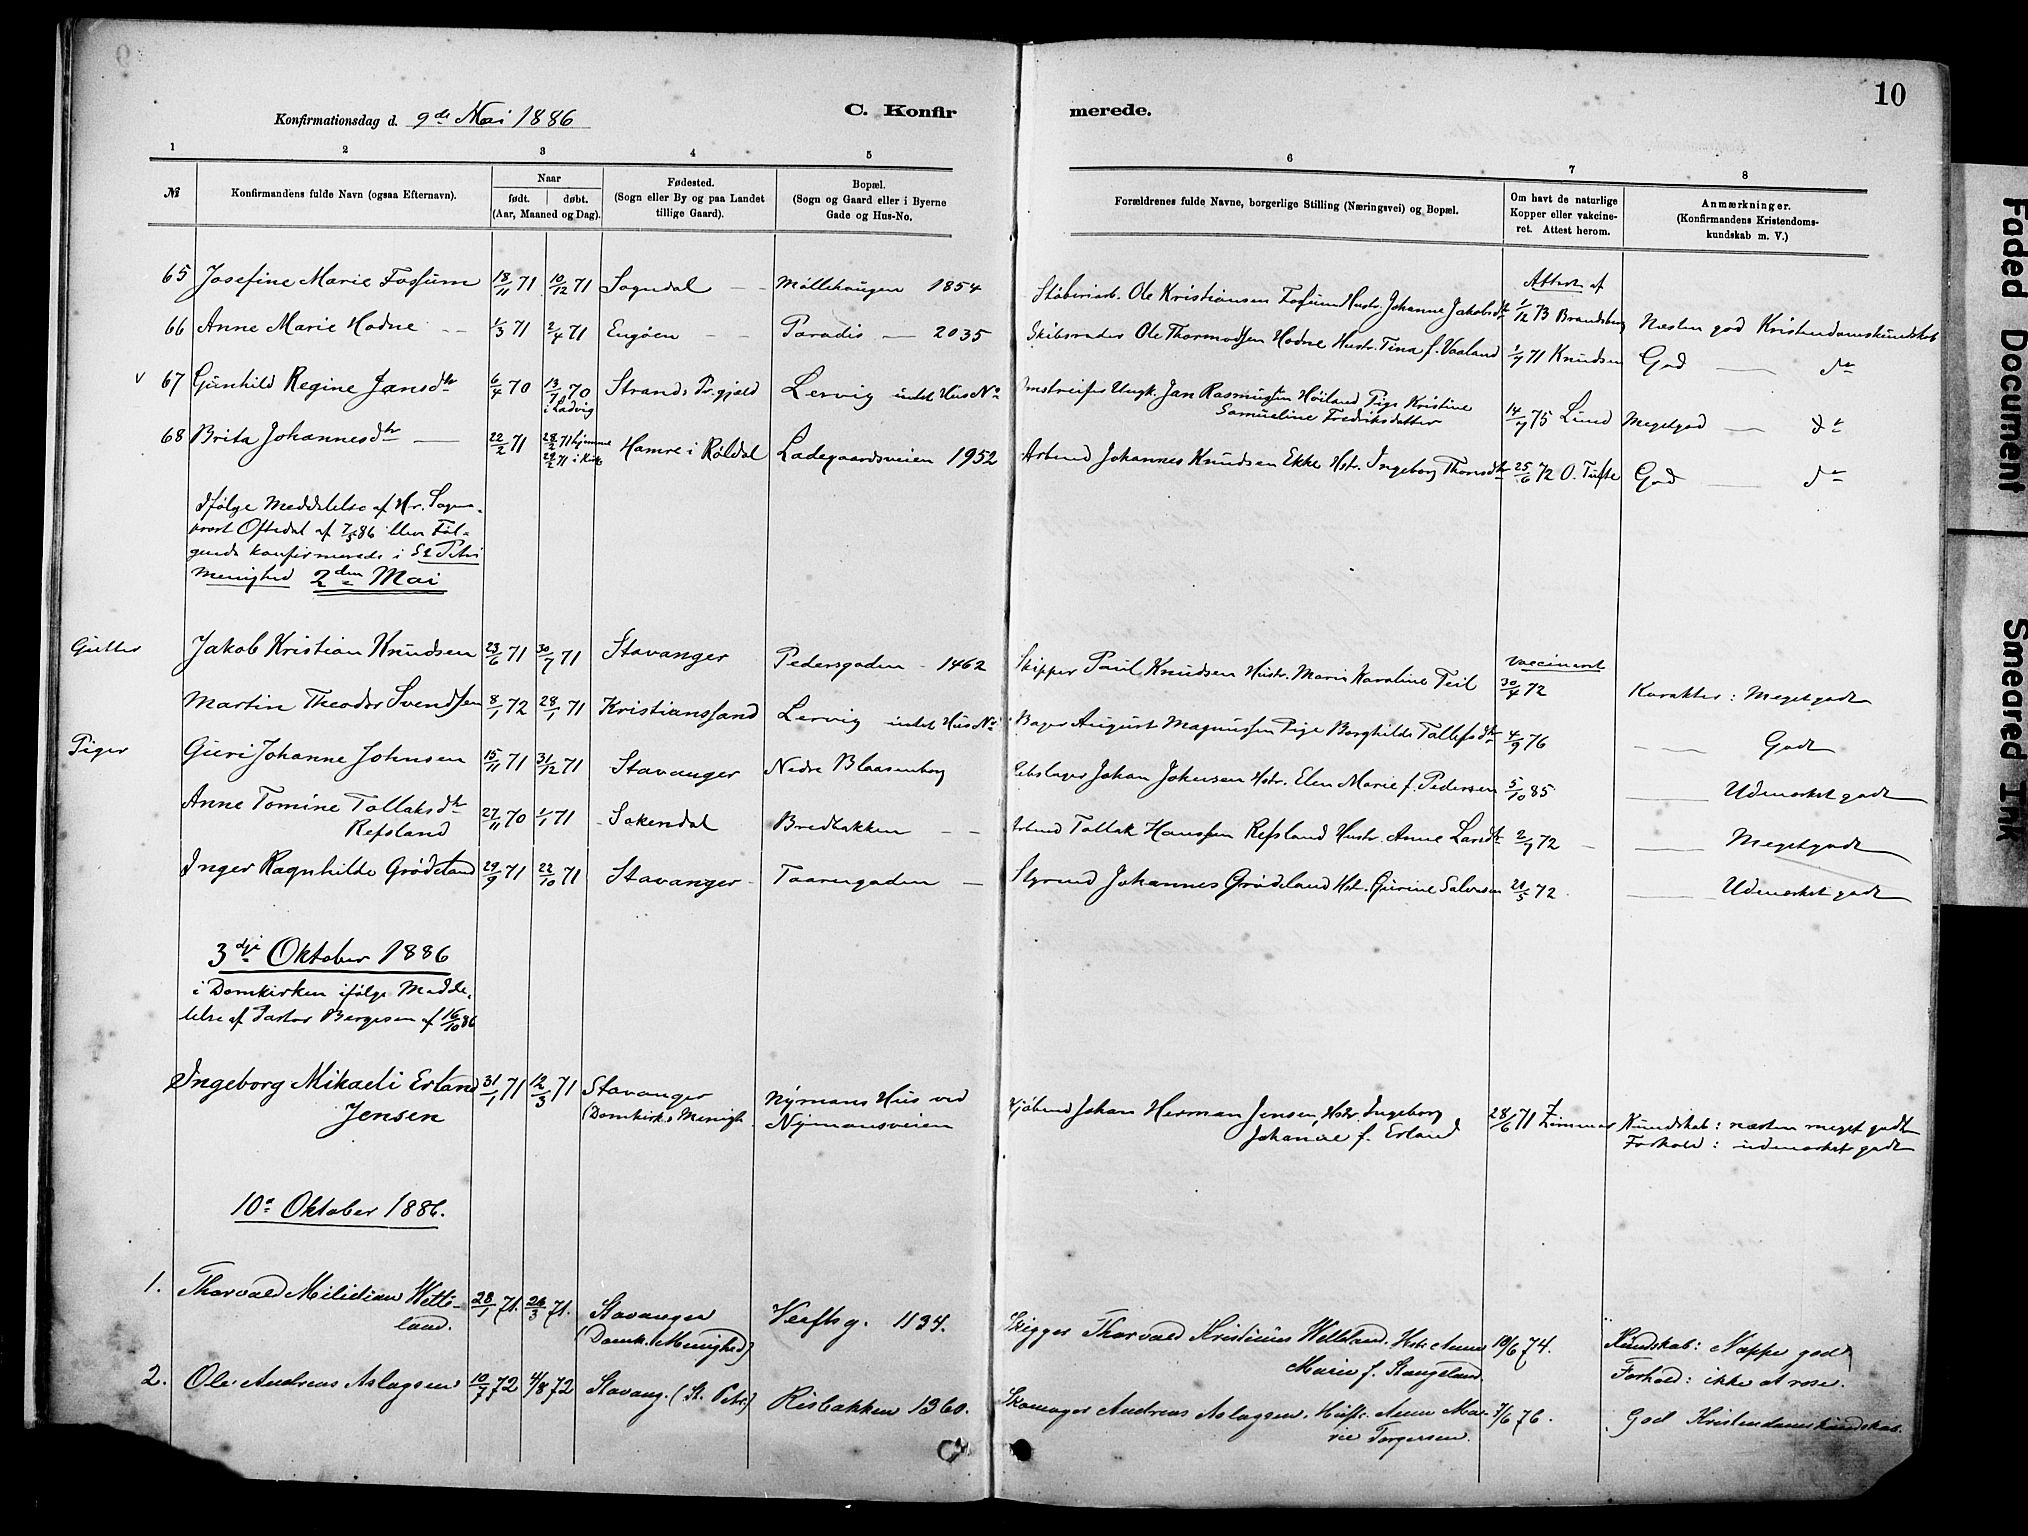 10
Konfirmationsdag d. 9de Mai 1886
C. Konfirmerede.
1 2 3 4 5 6 7 8
№
Konfirmandens fulde Navn (ogsaa Efternavn).
Naar
født. døbt.
(Aar, Maaned og Dag).
Fødested.
(Sogn eller By og paa Landet
tillige Gaard).
Bopæl.
(Sogn og Gaard eller i Byerne
Gade og Hus-No.
Forældrenes fulde Navne, borgerlige Stilling (Næringsvei) og Bopæl.
Om havt de naturlige
Kopper eller vakcine-
ret. Attest herom.
Anmærkninger.
(Konfirmandens Kristendoms-
kundskab m. V.)
Attest af
65 Josefine Marie Fossum 18/11 71 10/12 71 Sogndal Møllehaugen 1854 Støberiarb. Ole Kristiansen Fossum Hustr. Johanne Jakobsdtr 1/12 73 Brandsberg Næsten god Kristendomskundskab
66 Anne Marie Hodne 1/3 71 2/4 71 Engøen Paradis 2035 Skibsreder Ole Thormodsen Hodne Hustr. Tina f. Vaaland 1/7 71 Knudsen God do
v 67 Gunhild Regine Jansdtr 6/4 70 13/7 70 Strands Pr.gjæld Lervig intet Hus No Omstreifer Ungk. Jan Rasmussen Høiland Pige Kristine 14/7 75 Lund Megetgod do
i Ladvig
Samueline Fredriksdatter
68 Brita Johannesdtr 22/2 71 28/2 71 hjemme Hamre i Røldal Ladegaardsveien 1952 Arbmd Johannes Knudsen Ekke Hstr. Ingeborg Thorsdtr 25/6 72 O. Tufte God do
Ifølge Meddelelse af Hr. Sogne-
prest Oftedal af 7/5 86 blev Føl-
gende konfirmerede i St Petri
Menighed 2den Mai
vaccineret
Gutter Jakob Kristian Knudsen 23/6 71 30/7 71 Stavanger Pedersgaden 1462 Skipper Paul Knudsen Hustr. Maria Karoline Teil 30/4 72 Karakter: Megetgodt
Martin Theodor Svendsen 8/1 72 28/1 71 Kristianssand Lervig intet Hus No Bager August Magnussen Pige Borghilde Tollefsdtr 4/9 76 Godt
Piger Guri Johanne Johnsen 15/11 71 31/12 71 Stavanger Nedre Blaasenborg Rebslager Johan Johnsen Hstr. Elen Marie f. Pedersen 5/10 85 Udmerket godt
Anne Tomine Tollaksdtr 27/11 70 1/1 71 Sokendal Bredbakken Arbmd Tollak Hanssen Refsland Hustr. Anne Larsdtr 2/7 72 Megetgodt
Refsland
Inger Ragnhilde Grødeland 29/9 71 22/10 71 Stavanger Taarngaden Styrmd Johannes Grødeland Hst. Gurine Salvesen 21/5 72 Udmerket godt
3dje Oktober 1886
i Domkirken ifølge Medde-
lelse af Pastor Børgesen af 16/10 86
Ingeborg Mikaeli Erland 31/1 71 12/3 71 Stavanger Nymans Hus ved Kjøbmd Johan Herman Jensen, Hstr. Ingeborg 28/6 71 Zimmer Kundskab: næsten meget godt
Jensen (Domkirk. Menigh. Nymansveien Johanne f. Erland Forhold: udmerket godt
10a Oktober 1886.
1. Thorvald Milidian Wette- 28/1 71. 26/3 71. Stavanger Verftsg. 1124. Skipper Thorvald Kristinus Wetteland. Hstr Anne 10/6 74. Kundskab: Neppe god
land. (Domk. Menighed) Marie f. Stangeland. Forhold: ikke at rose.
2. Ole Andreas Aslagsen 10/7 72 4/8 72 Stavang. (St. Petri) Risbakken 1360. Skomager Andreas Aslagsen. Hustr. Anne Ma- 7/6 76. God Kristendomskundskab.
rie Torgersen.
Faded Document
Smeared Ink